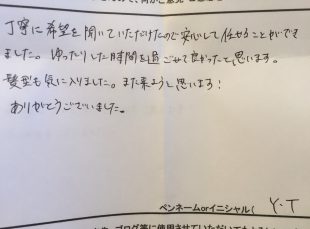 丁寧に希望を聞いていただけたので安心して任せることができ
ました。ゆったりした時間を過ごせて良かったと思います。
髪型も気に入りました。また来ようと思います！
ありがとうございました。
ペンネームorイニシャル( Y・T